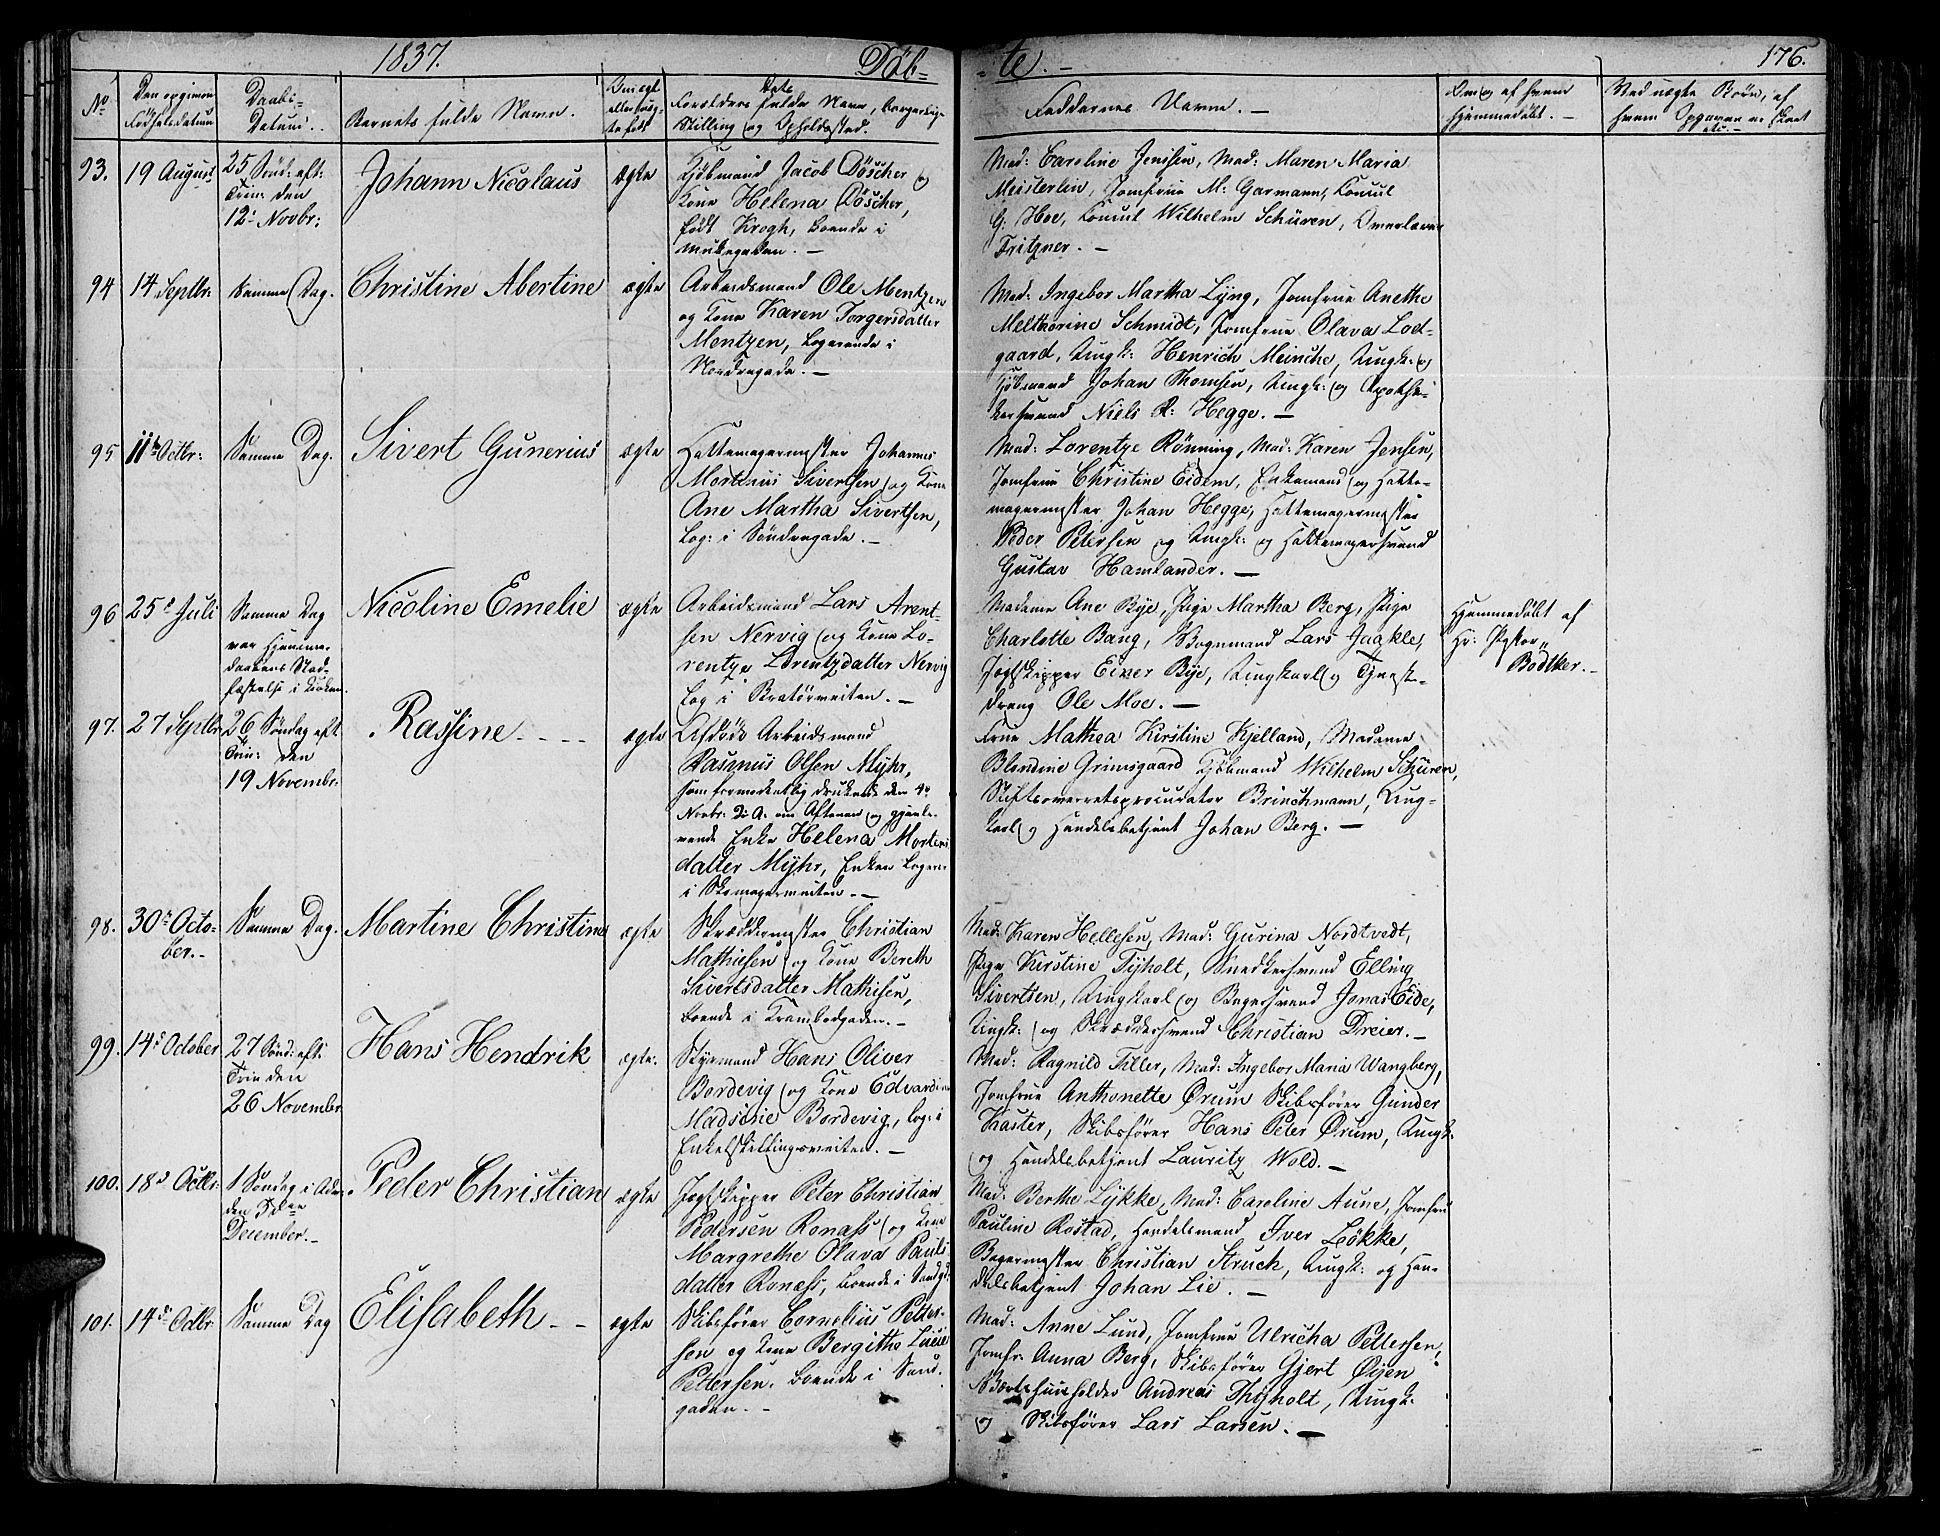 1837. Döb- -te. - 176.
No
Den opgivne Fødselsdatum
Daabs-Datum.
Barnets fulde Navn.
Om egte eller uægte født
Dets Forældres fulde Navn, borgerlige Stilling og Opholdssted.
Faddernes Navne. -
Om og af hvem hjemmedøbt. -
Ved uægte Børn, af hvem Opgaven er skeet etc. -
93. 19 August
25 Sönd: eft:
Trin: den
12. Novbr:
Johann Nicolaus
ægte
Kjöbmand Jacob Döscher og
Kone Helena Döscher,
født Krogh, boende i
Munkegaden. -
Mad: Caroline Jenssen, Mad: Maren Maria
Meisterlin, Jomfrue M: Garmann, Consul
G: Hoe, Consul Wilhelm Schüren, Overlærer
Fritzner. -
94 14 Septbr:
Samme Dag.
Christine Abertine
ægte
Arbeidsmand Ole Mentzen
og Kone Karen Torgersdatter
Mentzen, Logerende i
Nordregade. -
Mad: Ingebor Martha Lÿng, Jomfrue Anethe
Melthorine Schmidt, Jomfrue Olava Lod-
gaard, Ungk: Henrich Meincke, Ungk: og
Kjöbmand Johan Thomsen, Ungk: og Apothe-
kersvend Niels R: Hegge. -
95 11te Octbr:
Samme Dag.
Sivert Gunerius
ægte
Hattemagermester Johannes
Mortinus Sivertsen og Kone
Ane Martha Sivertsen,
Log: i Söndregade. -
Mad: Lorentze Rönning, Mad: Karen Jensen,
Jomfrue Christine Eidem, Enkemand og Hatte-
magermester Johan Hegge, Hattemagermester
Peder Petersen og Ungk: og Hattemagersvend
Gustav Hamlander. -
96 25 Juli
Samme Dag
var Hjemme-
daabens Stad-
fæstelse i Kirken.
Nicoline Emelie
ægte
Arbeidsmand Lars Arent-
sen Nervig og Kone Lo-
rentze Lorentzdatter Nervig
Log i Bratörveiten. -
Madame Ane Bÿe, Pige Martha Berg, Pige
Charlotte Bang, Vognmand Lars Jaakle,
Jægtskipper Eiver Bÿe, Ungkarl og Tjeneste-
dreng Ole Moe. -
Hjemmedöbt af
Hr: Pastor
Bödtker. -
97. 27 Septbr
26 Söndag eft.
Trin: den
19 Novembr:
Rassine - - - -
ægte
Afdöde Arbeidsmand
Rasmus Olsen Mÿhr,
som formodentlig druknede den 4de
Novbr: d: A: om Aftenen og gjenle-
vende Enke Helena Mortens
datter Mÿhr, Enken Logerer
i Skomagerveiten. -
Frue Mathea Kirstine Kjelland, Madame
Blendine Grimsgaard Kjöbmand Wilhelm Schüren,
Stiftsoverretsprocurator Brinchmann, Ung-
karl og Handelsbetjent Johan Berg. -
98. 30. Octo-
ber. -
Samme Dag.
Martine Christine
ægte
Skræddermester Christian
Mathiesen og Kone Bereth
Sivertsdatter Mathisen,
boende i Krambodgaden. -
Mad: Karen Hellesen, Mad: Gurina Nordtvedt,
Pige Kirstine Tÿholt, Snedkersvend Elling
Sivertsen, Ungkarl og Bagersvend Jonas Eide,
Ungk: og Skræddersvend Christian Dreier. -
99. 14. October
27 Sönd: eft:
Trin den
26 November
Hans Hendrik
ægte.
Styrmand Hans Oliver
Bordevig og Kone Edvardine
Madsine Bordevig, log: i
Enkeltskillingsveiten. -
Mad: Ragnild Tiller, Mad: Ingebor Maria Wangberg,
Jomfrue Anthonette Örum Skibsfører Gunder
Kaster, Skibsfører Hans Peter Örum, Ungk:
og Handelsbetjent Lauritz Wold. -
100. 18. Octbr:
1 Söndag i Adv:
den 3die
December. -
Peder Christian
ægte
Jægtskipper Peter Christian
Pedersen Ronass og Kone
Margrethe Olava Pauls
datter Ronass, boende i Sandgd:
Mad: Berthe Lÿkke, Mad: Caroline Aune, Jomfrue
Pauline Rostad, Handelsmand Iver Lökke,
Bagermester Christian Struck, Ungk: og Han-
delsbetjent Johan Lie. -
101. 14. Octbr
Samme Dag
Elisabeth - -
ægte
Skibsfører Cornelius Petter-
sen og Kone Bergithe Lucie
Pettersen, boende i Sand-
gaden. -
Mad: Anne Lund, Jomfrue Ulricha Pettersen,
Jomfr: Anna Berg, Skibsfører Gjert Öÿen
Værtshuusholder Andreas Thÿholt, Ungk:
og Skibsfører Lars Larsen. -